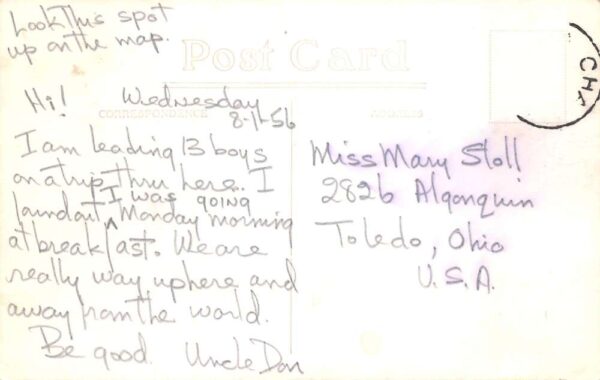 Look This spot
up on the map.
Post Card
Hi! Wednesday
8-1-56
CORRESPONDENCE
ADDRESS
I am leading 13 boys
on a trip thru here. I
found out ^ I was going Monday morning
at breakfast. We are
really way up here and
away from the world.
Be good. Uncle Don
Miss Mary Stoll
2826 Algonquin
Toledo, Ohio
U.S.A.
CHA